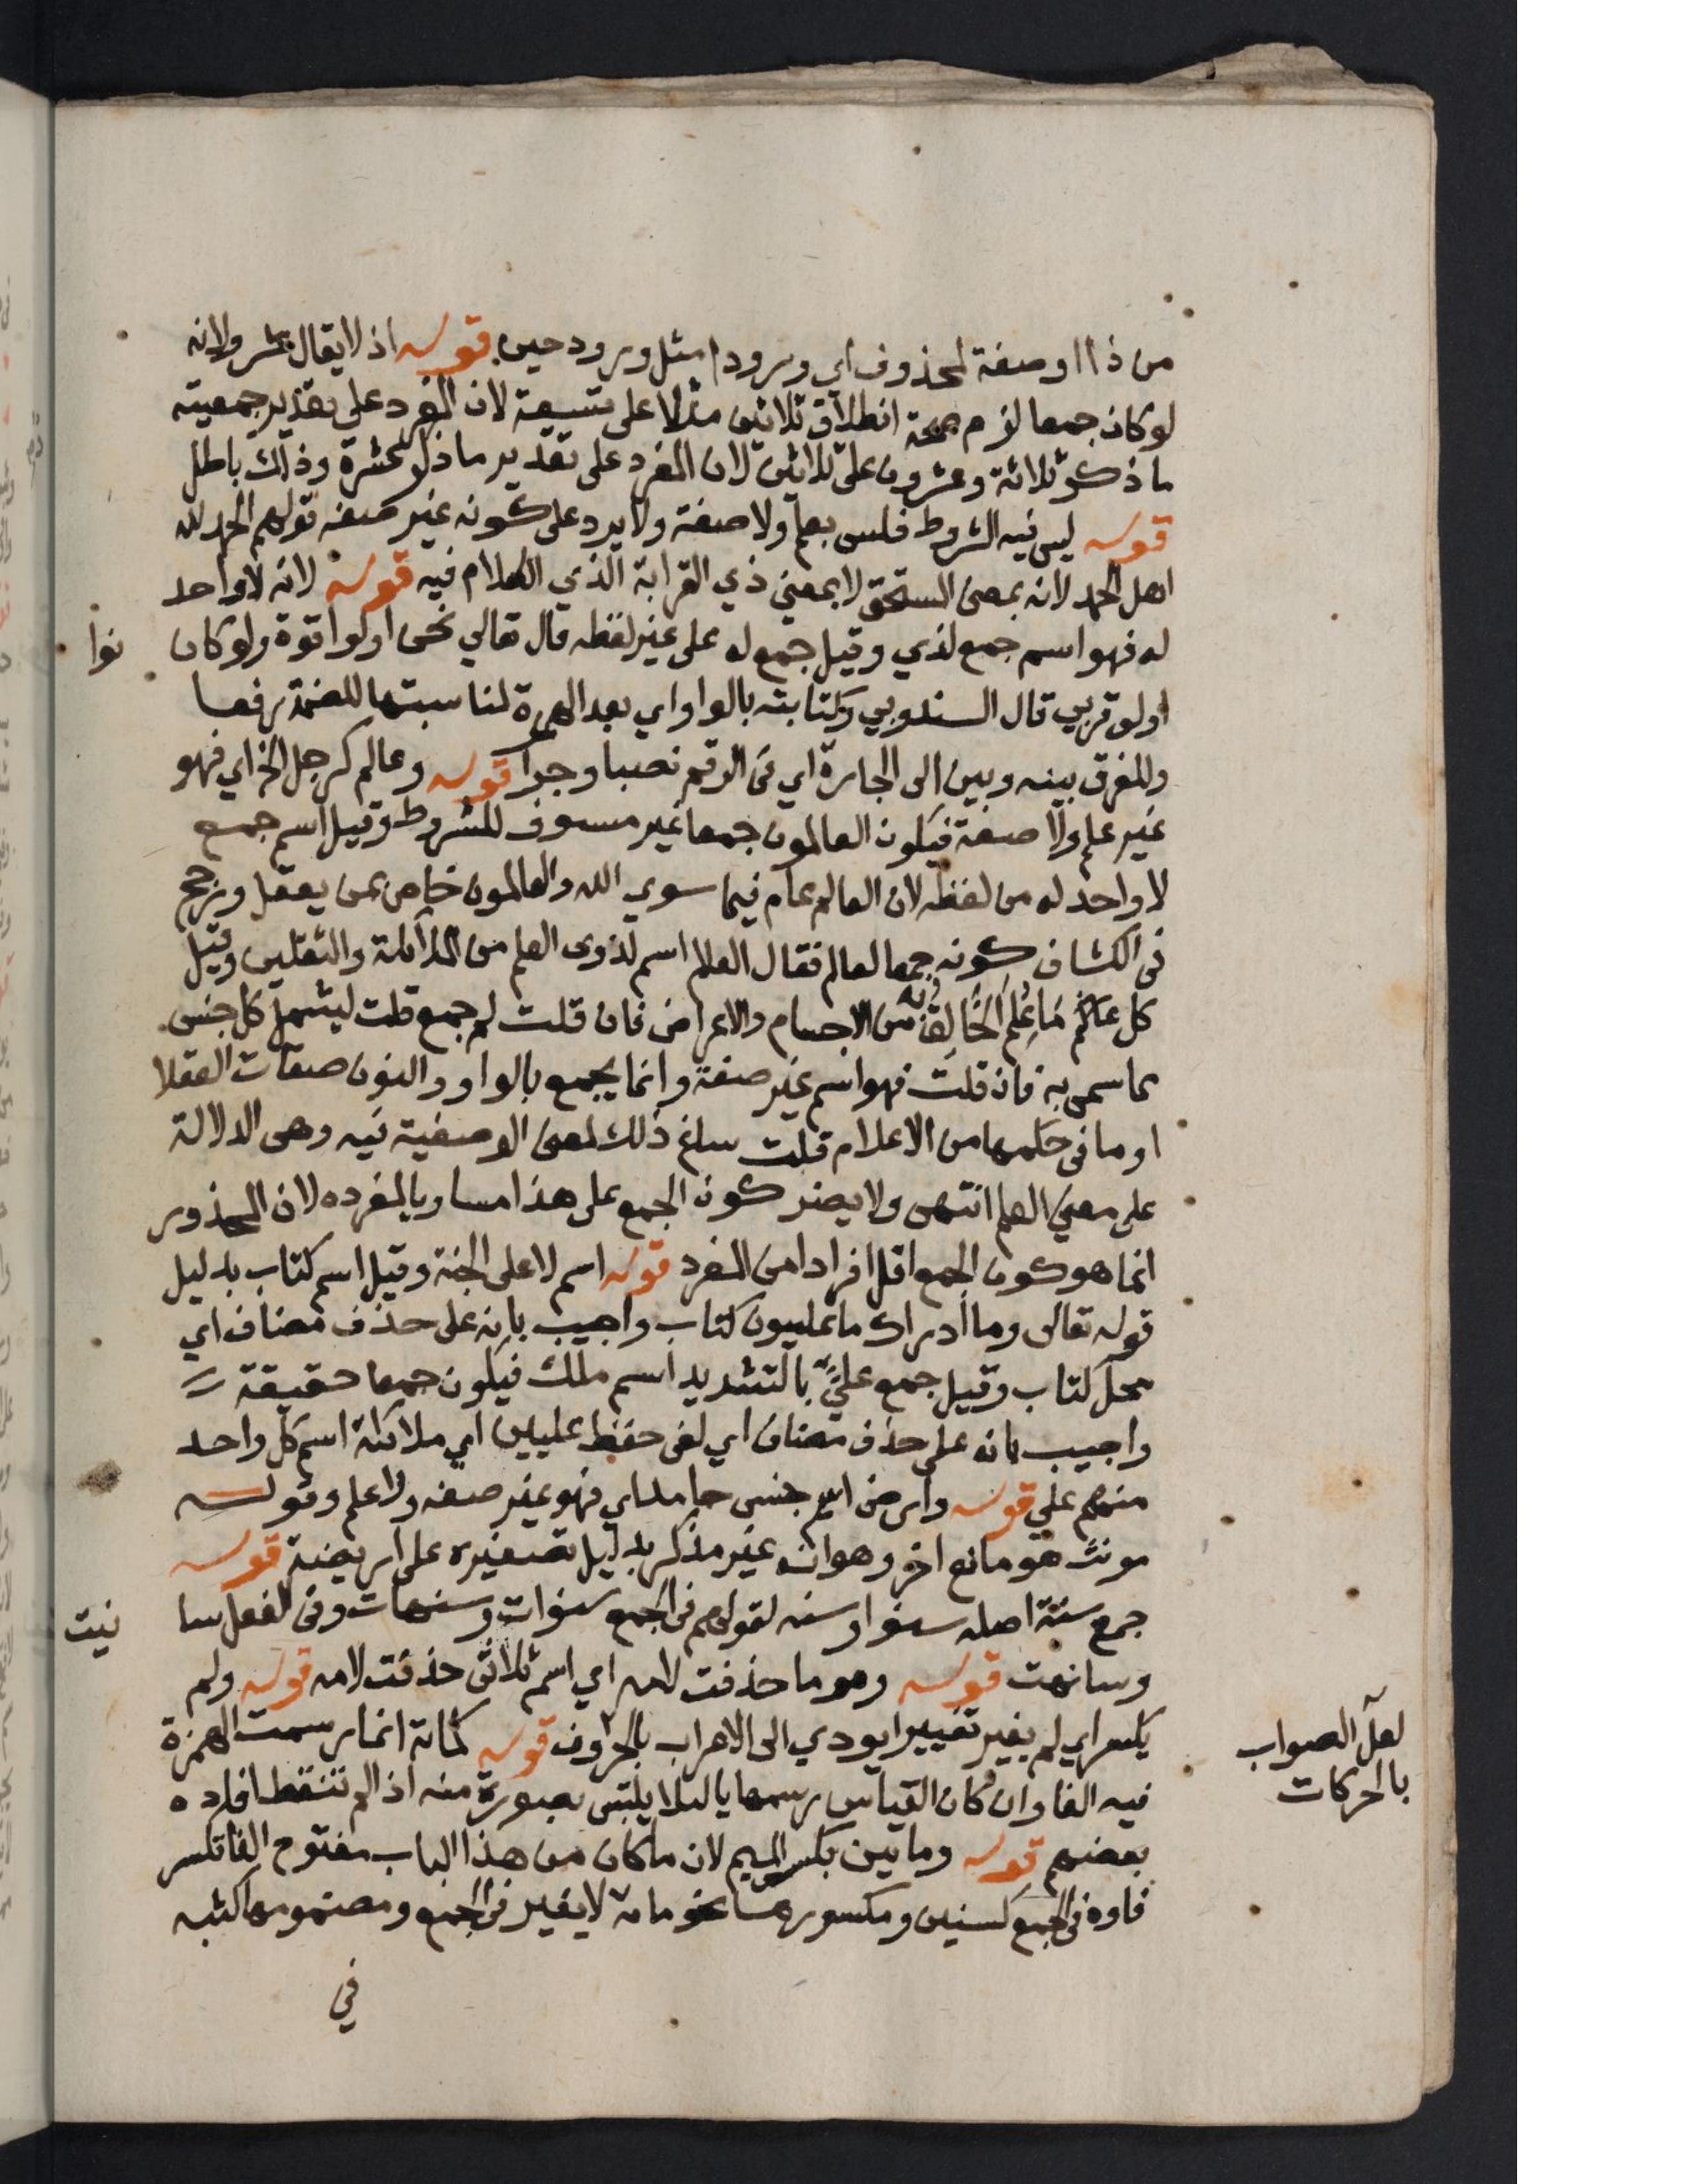 من ذا اوصفة لمحذوف اي ورودا مثل ورود حين قوله اذ لا يقال عشر ولانه
لو كان جمعا لزم صحة انطلاق ثلاثين مثلا على تسعة لان المفرد على تقدير جمعيته
ما ذكر ثلاثة وعشرون على ثلاثين لان المفرد على تقدير ما ذكر عشرة وذلك باطل
قوله ليس فيه الشروط فليس بعلم ولا صفة ولا يرد على كونه غير صفه قولهم الحمد لله
اهل الحمد لانه بمعنى المستحق لا بمعنى ذي القرابة الذي الكلام فيه قوله لانه لا واحد
له فهو اسم جمع لذي وقيل جمع له على غير لفظه قال تعالي نحن اولوا قوة ولو كان نوا
اولو قربي قال السندوبي وكتابته بالواو اي بعد الهمزة لمناسبتها للضمة رفعا
وللفرق بينه وبين الى الجارة اي في الرقم نصبا وجرا قوله وعالم كرجل الخ اي فهو
غير علم ولا صفة فيكون العالمون جمعا غير مستوف للشروط وقيل اسم جمع
لا واحد له من لفظه لان العالم عام فيما سوي الله والعالمون خاص بمن يعقل ورجح
في الكشاف كونه جمعا لعالم فقال العلا اسم لذوى العلم من الملائكة والثقلين وقيل
كل عالم ما علم به الخالق من الاجسام والاعراض فان قلت لم جمع قلت ليشمل كل جنس
مما سمى به فان قلت فهو اسم غير صفة وانما يجمع بالواو والنون صفات العقلا
او ما في حكمها من الاعلام قلت ساغ ذلك لمعنى الوصفية فيه وهى الدلالة
على معنى العلم انتهى ولا يضر كون الجمع على هذا مساويا لمفرده لان المحذور
انما هو كون الجمع اقل افرادا من المفرد قوله اسم لاعلى الجنة وقيل اسم كتاب بدليل
قوله تعالى وما ادراك ما عليون كتاب واجيب بانه على حذف مضاف اي
محل كتاب وقيل جمع علي بالتشديد اسم ملك فيكون جمعا حقيقة
واجيب بانه على حذف مضاف اي لفي حفظ عليين اي ملائكة اسم كل واحد
منهم علي قوله وارض اسم جنس جامد اي فهو غير صفه ولا علم وقوله
مونث هو مانع اخر وهو انه غير مذكر بدليل تصغيره على اريضة قوله
جمع سنة اصله سنو او سنه لقولهم في الجمع سنوات وسنهات وفي الفعل سا نيت
وسانهت قوله وهو ما حذفت لامه اي اسم ثلاثى حذفت لامه قوله ولم
يكسر اي لم يغير تغييرا يودي الى الاعراب بالحروف قوله كمائة انما رسمت الهمزة
لعل الصواب
بالحركات
فيه الفا وان كان القياس رسمها يا لئلا يلتبس بصورة منه اذا لم تنقط افاده
بعضهم قوله ومايين بكسر الميم لان ما كان من هذا الباب مفتوح الفا تكسر
فاوه في الجمع كسنين ومكسورها نحو مائة لا يغير في الجمع ومضمومها كثبه
في